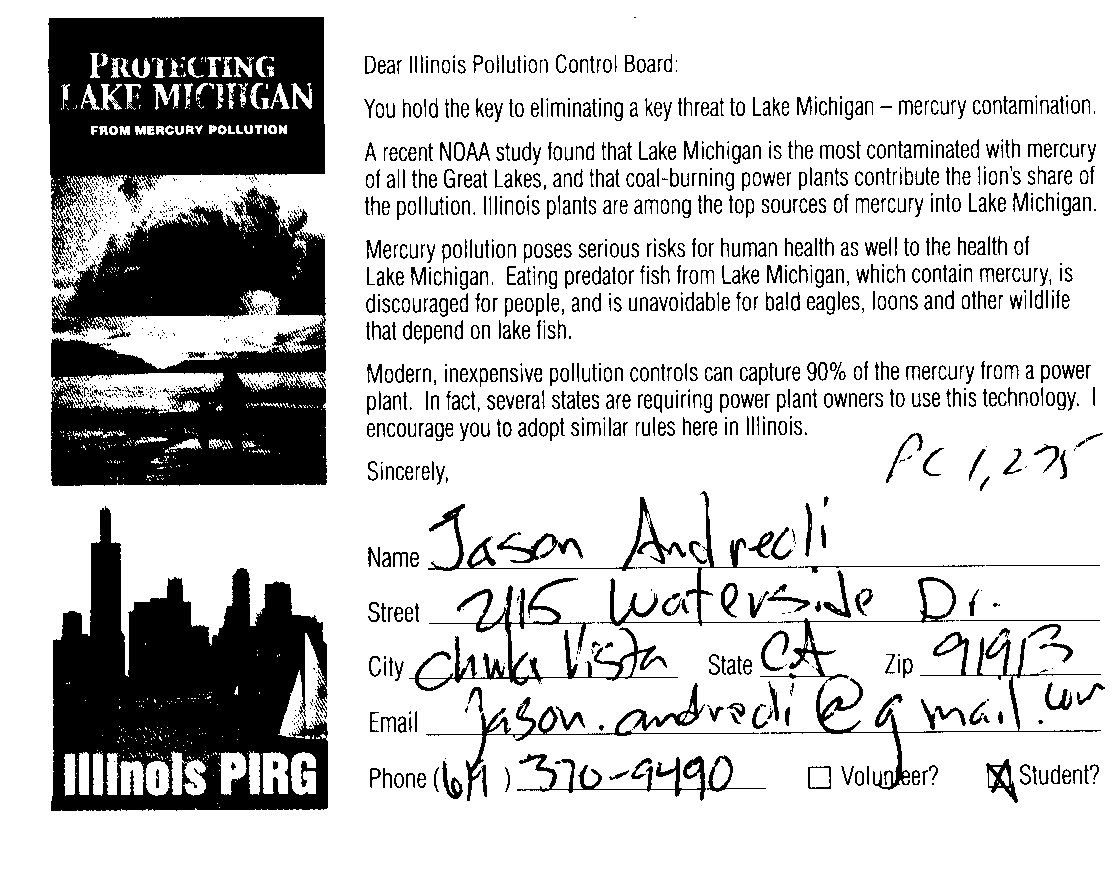 PROTECTING
LAKE MICHIGAN
FROM MERCURY POLLUTION
Dear Illinois Pollution Control Board:
You hold the key to eliminating a key threat to Lake Michigan – mercury contamination.
A recent NOAA study found that Lake Michigan is the most contaminated with mercury
of all the Great Lakes, and that coal-burning power plants contribute the lion's share of
the pollution. Illinois plants are among the top sources of mercury into Lake Michigan.
Mercury pollution poses serious risks for human health as well to the health of
Lake Michigan. Eating predator fish from Lake Michigan, which contain mercury, is
discouraged for people, and is unavoidable for bald eagles, loons and other wildlife
that depend on lake fish.
Modern, inexpensive pollution controls can capture 90% of the mercury from a power
plant. In fact, several states are requiring power plant owners to use this technology. I
encourage you to adopt similar rules here in Illinois.
Sincerely,
PC 1,275
Name Jason Andreoli
Street 2115 Waterside Dr.
City Chula Vista State CA Zip 91913
Email jason.andreoli@gmail.com
Phone (619) 370-9490 Volunteer? Student?
Illinois PIRG